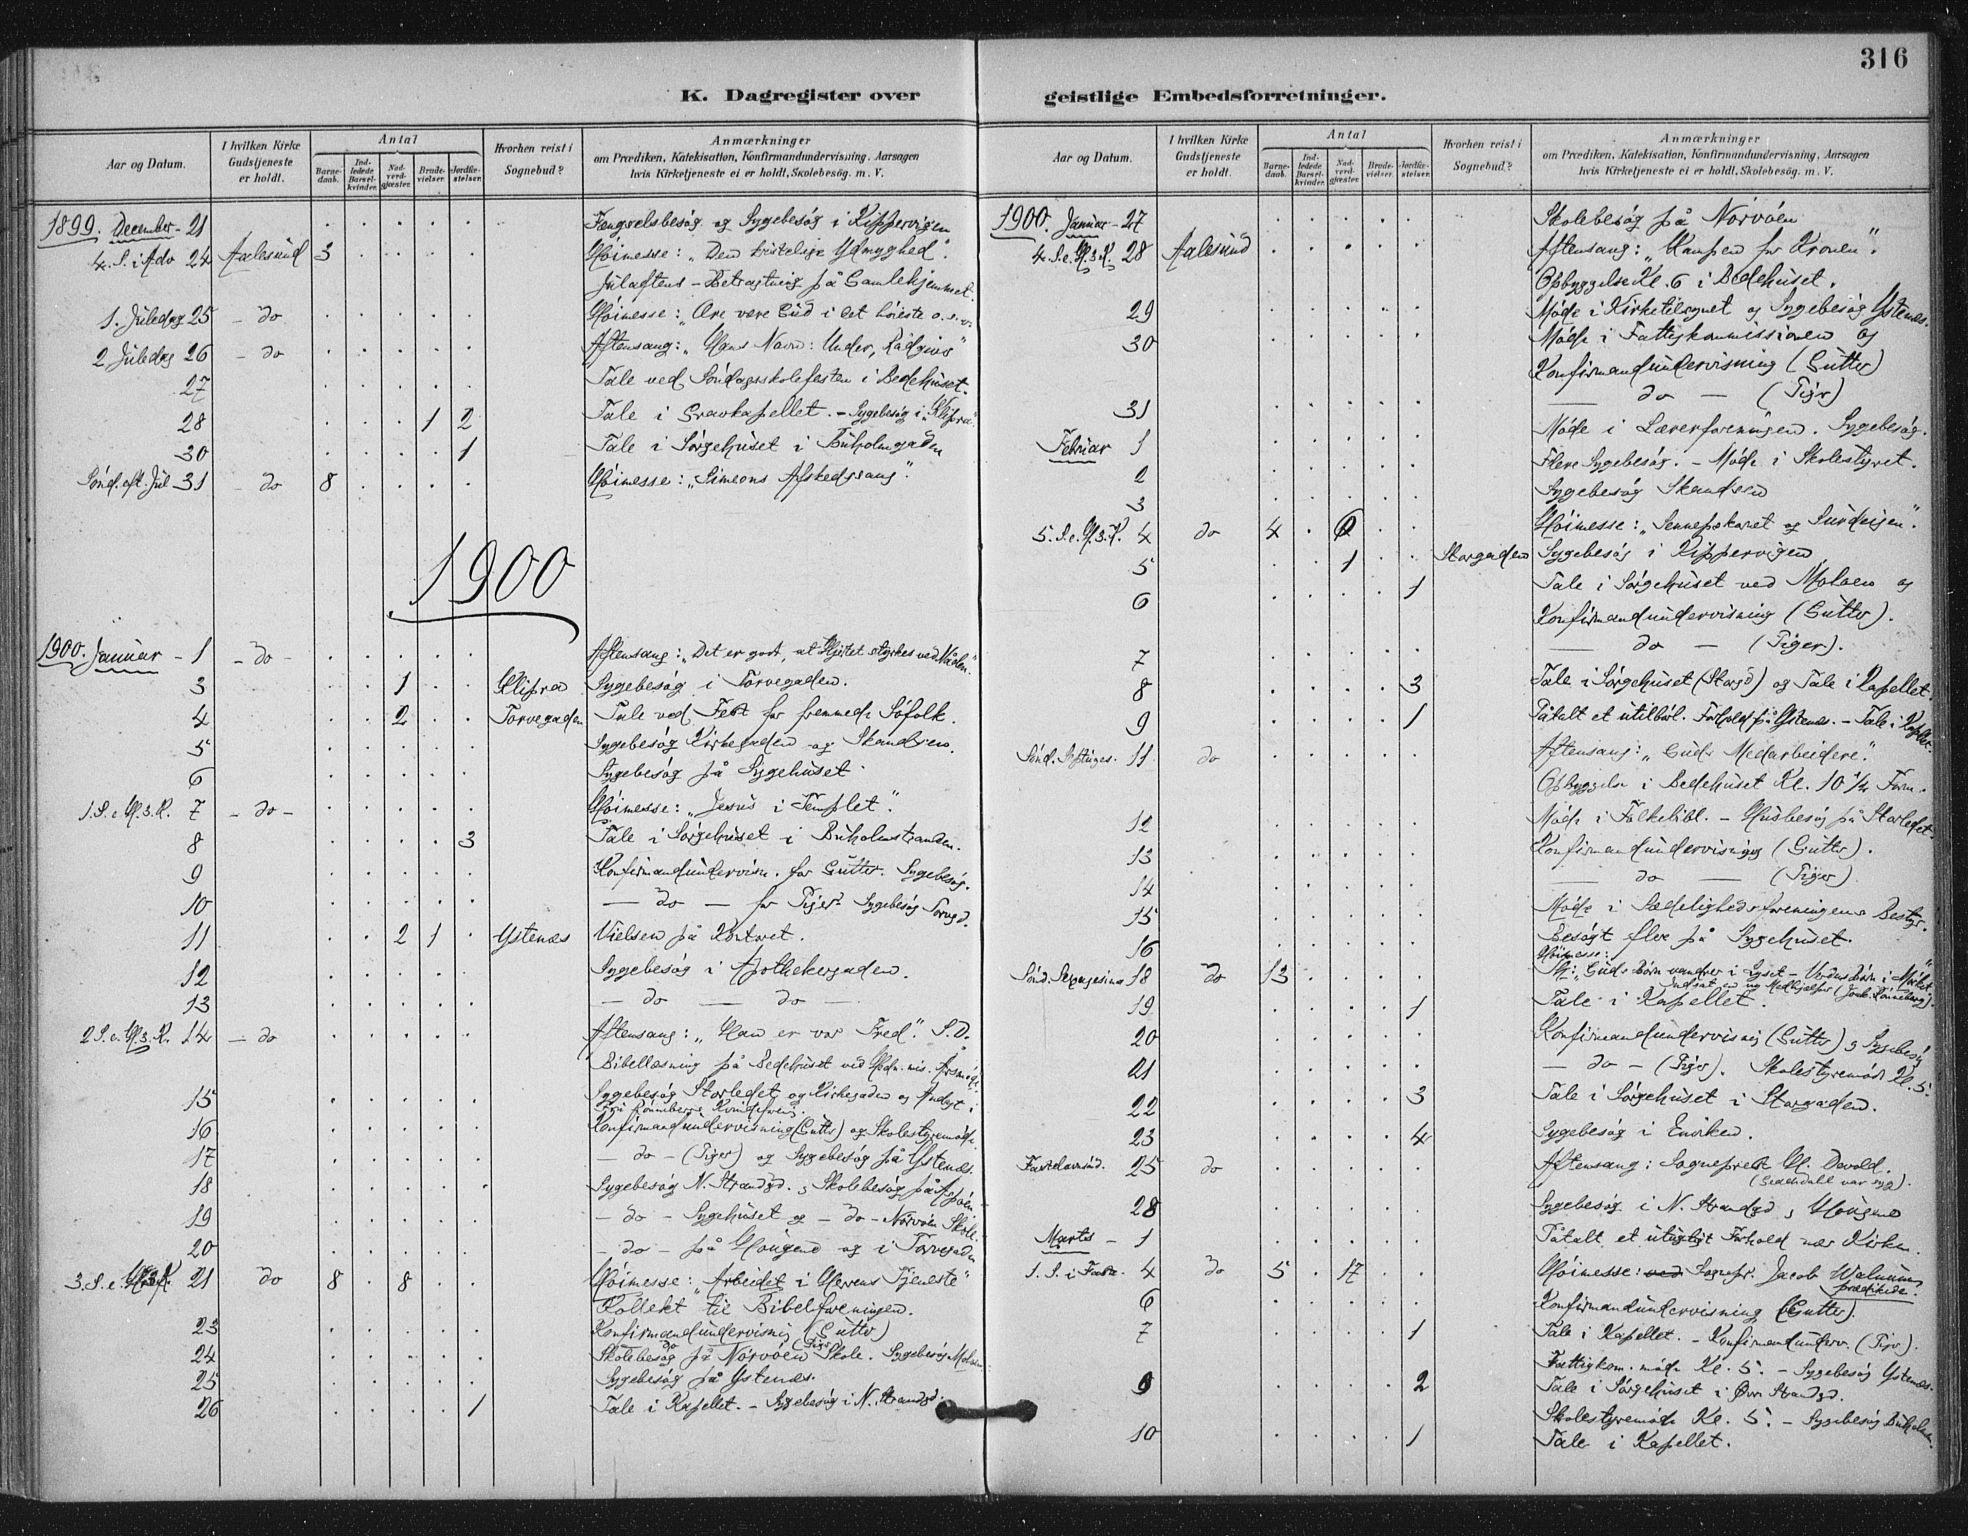 316
K. Dagregister over
Aar og Datum.
I hvilken Kirke Gudstjeneste er holdt.
Antal
Barne-daab.
Ind-ledede Barsel-kvinder.
Nad-verd-gjæster.
Brude-vielser.
Jordfæ-stelser.
Hvorhen reist i Sognebud?
Anmærkninger
om Prædiken, Katekisation, Konfirmandundervisning, Aarsagen
hvis Kirketjeneste ei er holdt, Skolebesøg. m. V.
1899. December - 21 Fængselsbesøg og Sygebesøg i Kippervigen
4. S. i Adv 24 Aalesund 3 Høimesse: „Den kristelige Ydmyghed".
Juleaftens-Betragtning på Samlehjemmet.
1. Juledag 25 - do Høimesse: „Ære være Gud i det høieste o. s. v.
2 Juledag 26 - do Aftensang: „Hans Navn: Under, Rådgiver"
27 Tale ved Søndagsskolefesten i Bedehuset.
28 1 2 Tale i Gravkapellet. - Sygebesøg i „Klipra"
30 1 Tale i Sørgehuset i Buholmgaden
Sønd. eft. Jul 31 - do 8 Høimesse: „Simeons Afskedssang".
1900
1900. Januar - 1 - do - Aftensang: „Det er godt, at Hjertet styrkes ved Nåden."
3 1 Klipra Sygebesøg i Torvegaden.
4 2 Torvegaden Tale ved Fest for fremmede Søfolk.
5 Sygebesøg Kirkegaden og Skandsen.
6 Sygebesøg på Sygehuset
1. S. e. H. 3. K. 7 - do - Høimesse: „Jesus i Templet".
8 3 Tale i Sørgehuset i Buholmstranden.
9 Konfirmandundervisn. for Gutter. Sygebesøg.
10 - do - for Piger. Sygebesøg Torvgd.
11 2 1 Ystenæs Vielsen på Kontoret.
12 Sygebesøg i Apothekergaden.
13 - do - do -
2 S. e. H. 3. K. 14 - do Aftensang: „Han er vor Fred". S. D.
Bibellæsning på Bedehuset ved Hedn. mis. Årsmøde
15 Sygebesøg Storledet og Kirkegaden og Andagt i
Fru Rønnebergs Kvindeforen.
16 Konfirmandundervisning (Gutter) og Skolestyremøde
17 - do - (Piger) og Sygebesøg på Ystenæs.
18 Sygebesøg N. Strandgd. & Skolebesøg på Aspøen
19 - do - Sygehuset og - do - Nørvøen Skole.
20 - do - på Haugene og i Torvegaden
3. S. e. H. 3. K. 21 do 8 8 Høimesse: „Arbeidet i Herrens Tjeneste"
Kollekt til Bibelforeningen.
23 Konfirmandundervisning (Gutter)
do (Piger)
24 Skolebesøg på Nørvøen Skole. Sygebesøg Moloen
25 Sygebesøg på Ystenæs.
26 1 Tale i Kapellet. - Sygebesøg i N. Strandgd.
geistlige Embedsforretninger.
Aar og Datum.
I hvilken Kirke Gudstjeneste er holdt.
Antal
Barne-daab.
Ind-ledede Barsel-kvinder.
Nad-verd-gjæster.
Brude-vielser.
Jordfæ-stelser.
Hvorhen reist i Sognebud?
Anmærkninger
om Prædiken, Katekisation, Konfirmandundervisning, Aarsagen
hvis Kirketjeneste ei er holdt, Skolebesøg. m. V.
1900. Januar - 27 Skolebesøg på Nørvøen
4. S. e. H. 3. K. 28 Aalesund Aftensang: „Kampen for Kronen".
Opbyggelse Kl. 6 i Bedehuset.
29 Møde i Kirketilsynet og Sygebesøg Ystenæs.
30 Møde i Fattigkommissionen og
Konfirmandundervisning (Gutter)
31 - do - (Piger)
Februar 1 Møde i Lærerforeningen. Sygebesøg.
2 Flere Sygebesøg. - Møde i Skolestyret.
3 Sygebesøg Skandsen
5. S. e. H. 3. K. 4 do 4 6 Høimesse: „Sennepskornet og Surdeigen".
5 1 Storgaden Sygebesøg i Kippervigen
6 1 Tale i Sørgehuset ved Moloen og
Konfirmandundervisning (Gutter).
7 - do - (Piger).
8 3 Tale i Sørgehuset (Storgd) og Tale i Kapellet.
9 1 Påtalt et utilbørl. Forhold på Ystenæs. - Tale i Kapellet.
Sønd. Septuages. 11 do Aftensang: „Guds Medarbeidere".
Opbyggelse i Bedehuset Kl. 10 1/4 Form.
12 Møde i Folkebibl. - Husbesøg på Storledet.
13 Konfirmandundervisning (Gutter).
14 - do - (Piger)
15 Møde i Sædelighedsforeningens Bestyr.
16 Besøgt flere på Sygehuset.
Sønd. Sexagesima 18 do 13 Høimesse: „Guds Børn vandrer i Lyset - Verdens Børn i Mørket"
Indsat en ny Medhjælper (Joak. Rønneberg).
19 1 Tale i Kapellet.
20 Konfirmandundervisning (Gutter) & Sygebesøg
21 - do - (Piger). Skolestyremøde Kl. 5.
22 3 Tale i Sørgehuset i Storgaden.
23 4 Sygebesøg i Enviken.
Fastelavnsd. 25 do Aftensang: Sogneprest H. Devold.
28 Sygebesøg i N. Strandgd & Haugene
Marts - 1 Påtalt et utugtigt Forhold nær Kirken.
1. S. i Faste. 4 do 5 17 Høimesse: ved Sognepr. Jacob Walnum
prædikede.
6 Konfirmandundervisning (Gutter).
7 1 Tale i Kapellet. - Konfirmandunderv. (Piger).
Fattigkom. møde Kl. 5. - Sygebesøg Ystenæs.
9 2 Tale i Sørgehuset i Øvr Strandgd.
Skolestyremøde Kl. 5. - Sygebesøg Buholmen.
10 1 Tale i Kapellet.